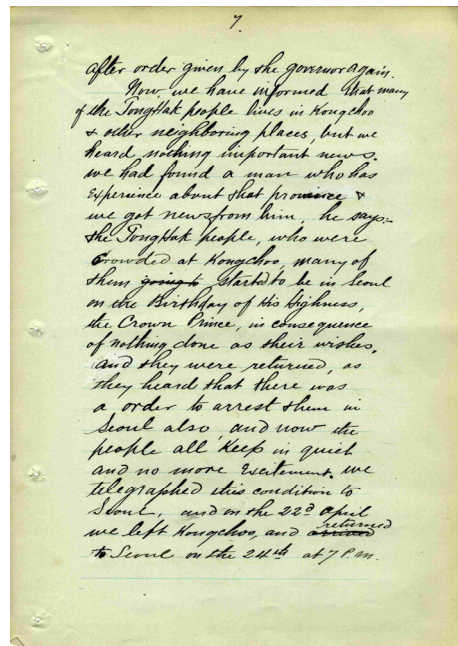 7.
after order given by the governor again.
Now, we have informed that many
of the TongHak people lives in Kongchoo
& other neighboring places, but we
heard nothing important news.
we had found a man who has
experience about that province &
we got news from him, he says:-
the TongHak people, who were
crowded at Kongchoo, many of
them going to started to be in Seoul
on the Birthday of His Highness,
the Crown Prince, in consequence
of nothing done as their wishes,
and they were returned, as
they heard that there was
a order to arrest them in
Seoul also, and now the
people all keep in quiet
and no more excitement. we
telegraphed this condition to
Seoul, and on the 22d April
we left Kongchoo, and arrived returned
to Seoul on the 24th at 7 P.m.